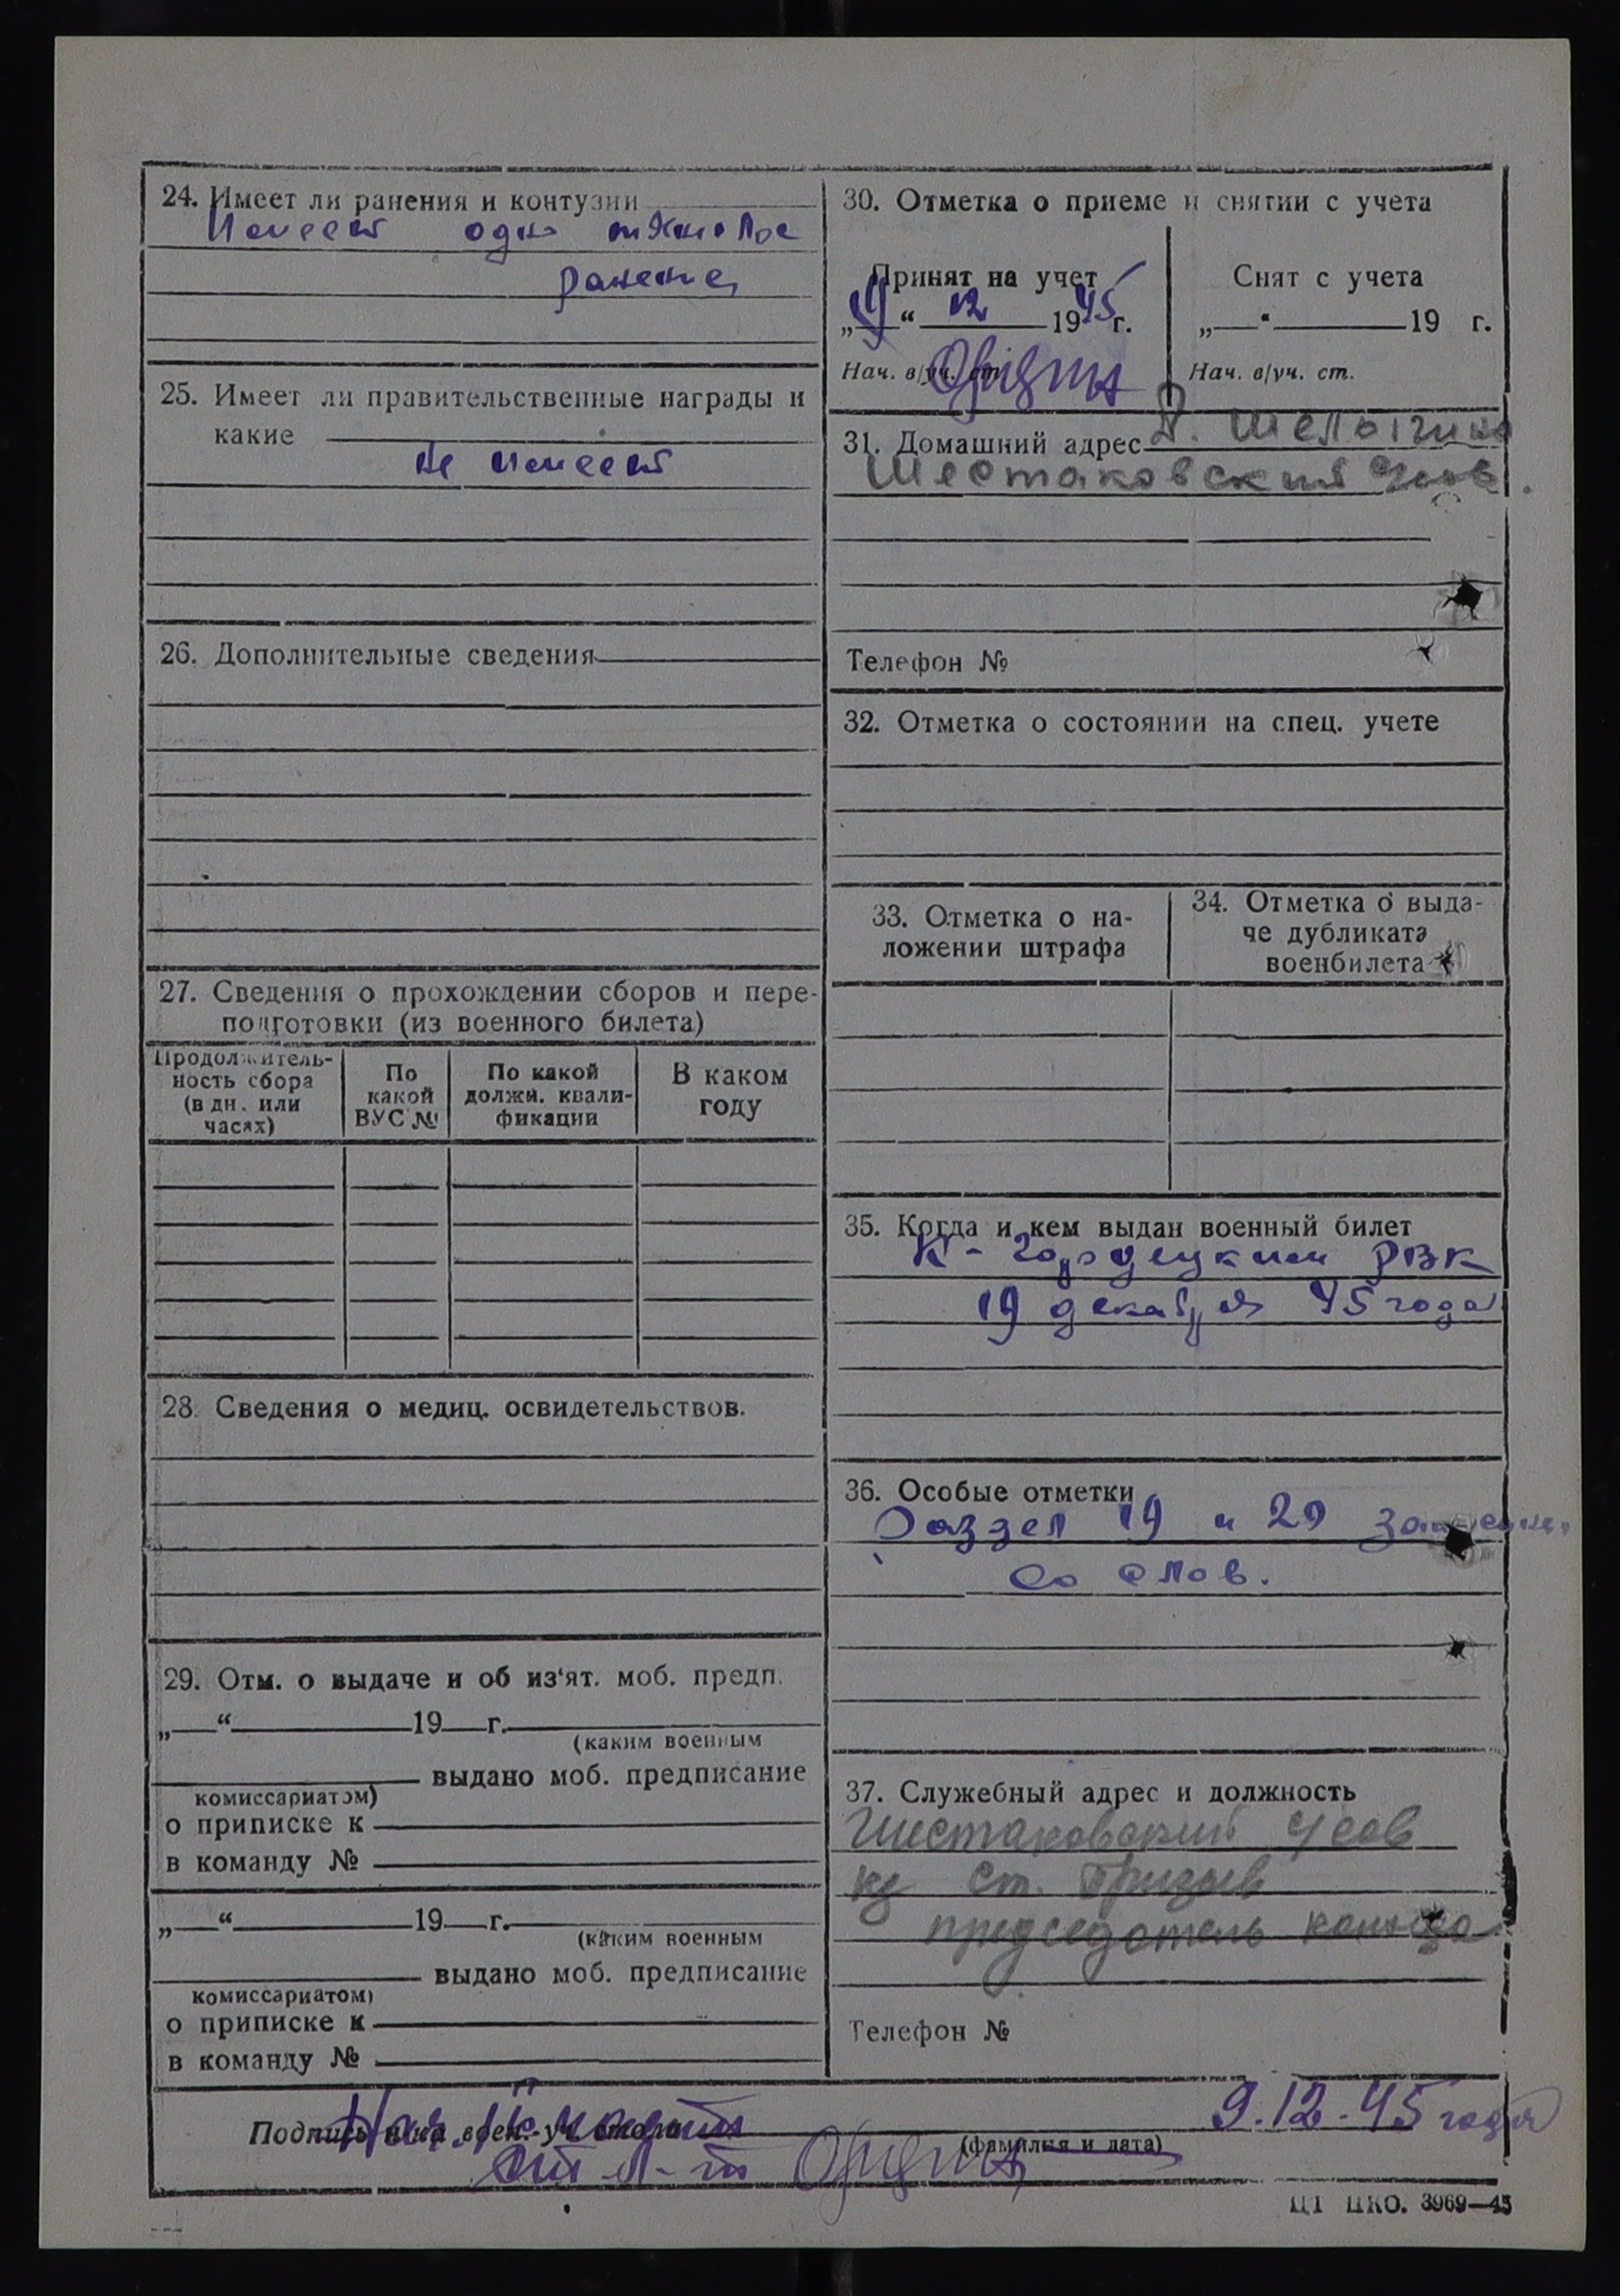 24. Имеет ли ранения и контузии
Имеет одно тяжелое
ранение
25. Имеет ли правительственные награды и
какие
не имеет
26. Дополнительные сведения
27. Сведения о прохождении сборов и пере-
подготовки (из военного билета)
Продолжитель-
ность сбора
(в дн. или
часах)
По
какой
ВУС №
По какой
должн. квали-
фикации
В каком
году
28. Сведения о медиц. освидетельствов.
29. Отм. о выдаче и об из‘ят. моб. предп.
„ “ 19 г.
(каким военным
выдано моб. предписание
комиссариатом)
о приписке к
в команду №
„ “ 19 г.
(каким военным
выдано моб. предписание
комиссариатом)
о приписке к
в команду №
30. Отметка о приеме и снятии с учета
Принят на учет
„19“ 12 1945 г.
Нач. в/уч. ст.
Снят с учета
„ “ 19 г.
Нач. в/уч. ст.
31. Домашний адрес Д.
Шестаковский
Телефон №
32. Отметка о состоянии на спец. учете
33. Отметка о на-
ложении штрафа
34. Отметка о выда-
че дубликата
военбилета
35. Когда и кем выдан военный билет
К-Городецким РВК
19 декабря 45 года
36. Особые отметки
Раздел 19 и 20
со слов.
37. Служебный адрес и должность
Шестаковский
ст.
председатель
Телефон №
Подпись н-ка воен.-уч. стола
Нач.
9.12.45 года
(фамилия и дата)
ст л-т
ЦТ НКО. 3969—45